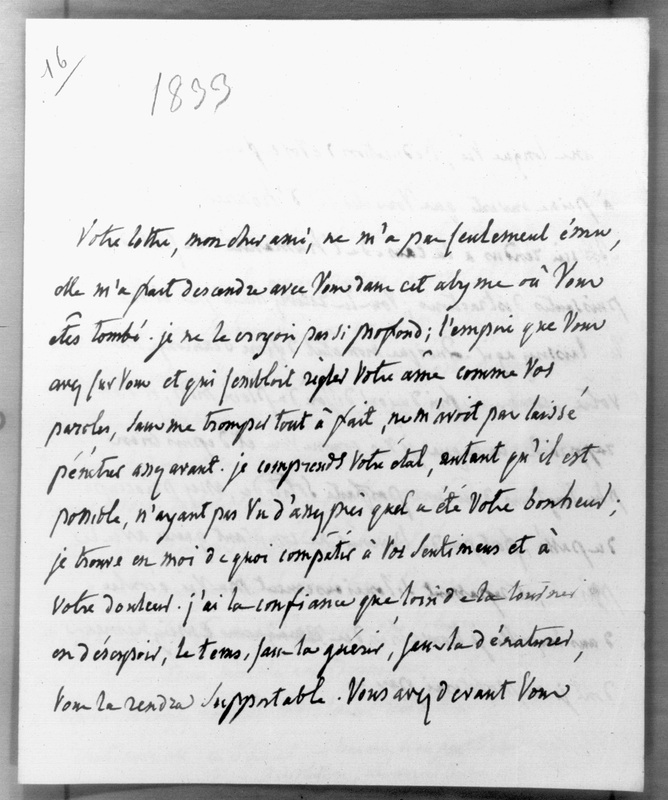 16
1833
Votre lettre, mon cher ami, ne m'a pas seulement ému,
elle m'a fait descendre avec Vous dans cet abyme où Vous
êtes tombé. je ne le croyois pas si profond; l'empire que Vous
avez sur Vous et qui sembloit regler Votre âme comme Vos
paroles, sans me tromper tout à fait, ne m'avoit pas laissé
pénétrer assez avant. je comprends Votre état, autant qu'il est
possible, n'ayant pas Vu d'assez près quel a été Votre bonheur;
je trouve en moi de quoi compâtir à Vos sentimens et à
Votre douleur. j'ai la confiance que loin de la tourner
en désespoir, le tems, sans la guérir, sans la dénaturer,
Vous la rendra supportable. Vous avez devant Vous